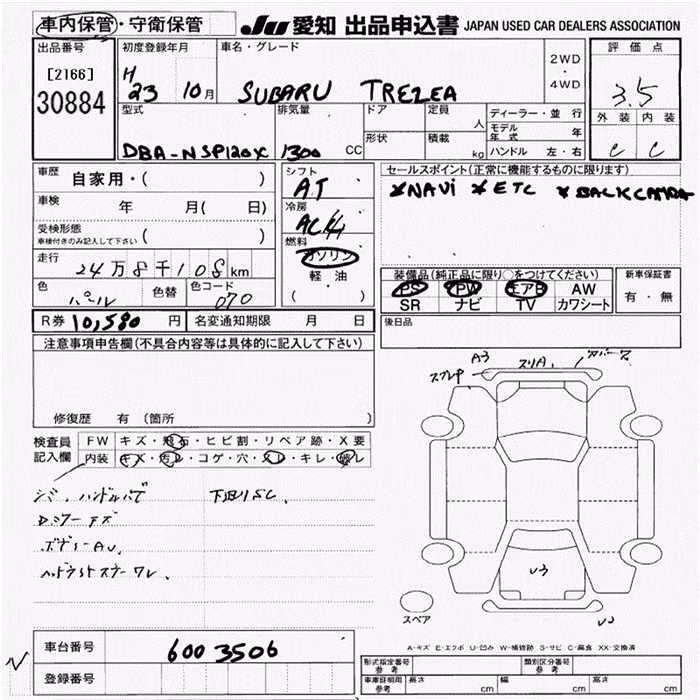 車内保管・守衛保管 JU 愛知 出品申込書 JAPAN USED CAR DEALERS ASSOCIATION
出品番号 初度登録年月 車名・グレード 2WD・4WD 評価点
[2166]
30884 H 23 10月 SUBARU TREZEA 3.5
外装 内装
C C
型式 排気量 ドア 定員 人 ディーラー・並行
モデル年式 年
形状 積載 kg ハンドル 左・右
DBA-NSP120X 1300 CC
車歴 自家用・( ) シフト AT セールスポイント(正常に機能するものに限ります)
*NAVi *ETC *BACKCAMRA
車検 年 月( 日) 冷房 AC
受検形態 ( )
車検付きのみ記入して下さい
燃料 ガソリン
軽・油
( )
走行 24万8千108km
装備品(純正品に限り○をつけてください) 新車保証書
PS PW エアB AW 有・無
SR ナビ TV カワシート
色 パール 色替 色コード 070
R券 10,580円 名変通知期限 月 日 後日品
注意事項申告欄(不具合内容等は具体的に記入して下さい)
修復歴 有 (箇所 )
A3 スリA
検査員記入欄 FW キズ・飛石・ヒビ割・リペア跡・X要
内装 キズ・汚レ・コゲ・穴・スレ・キレ・破レ
シミ、ハンドル
ヘッドライトスチーワレ、
U3
スペア
A-キズ E-エクボ U-凹み W-補修跡 S-サビ C-腐食 XX-交換済
車台番号 6003506
登録番号
型式指定番号 参考 類別区分番号 参考
車庫証明用 参考 長さ cm 幅 cm 高さ cm